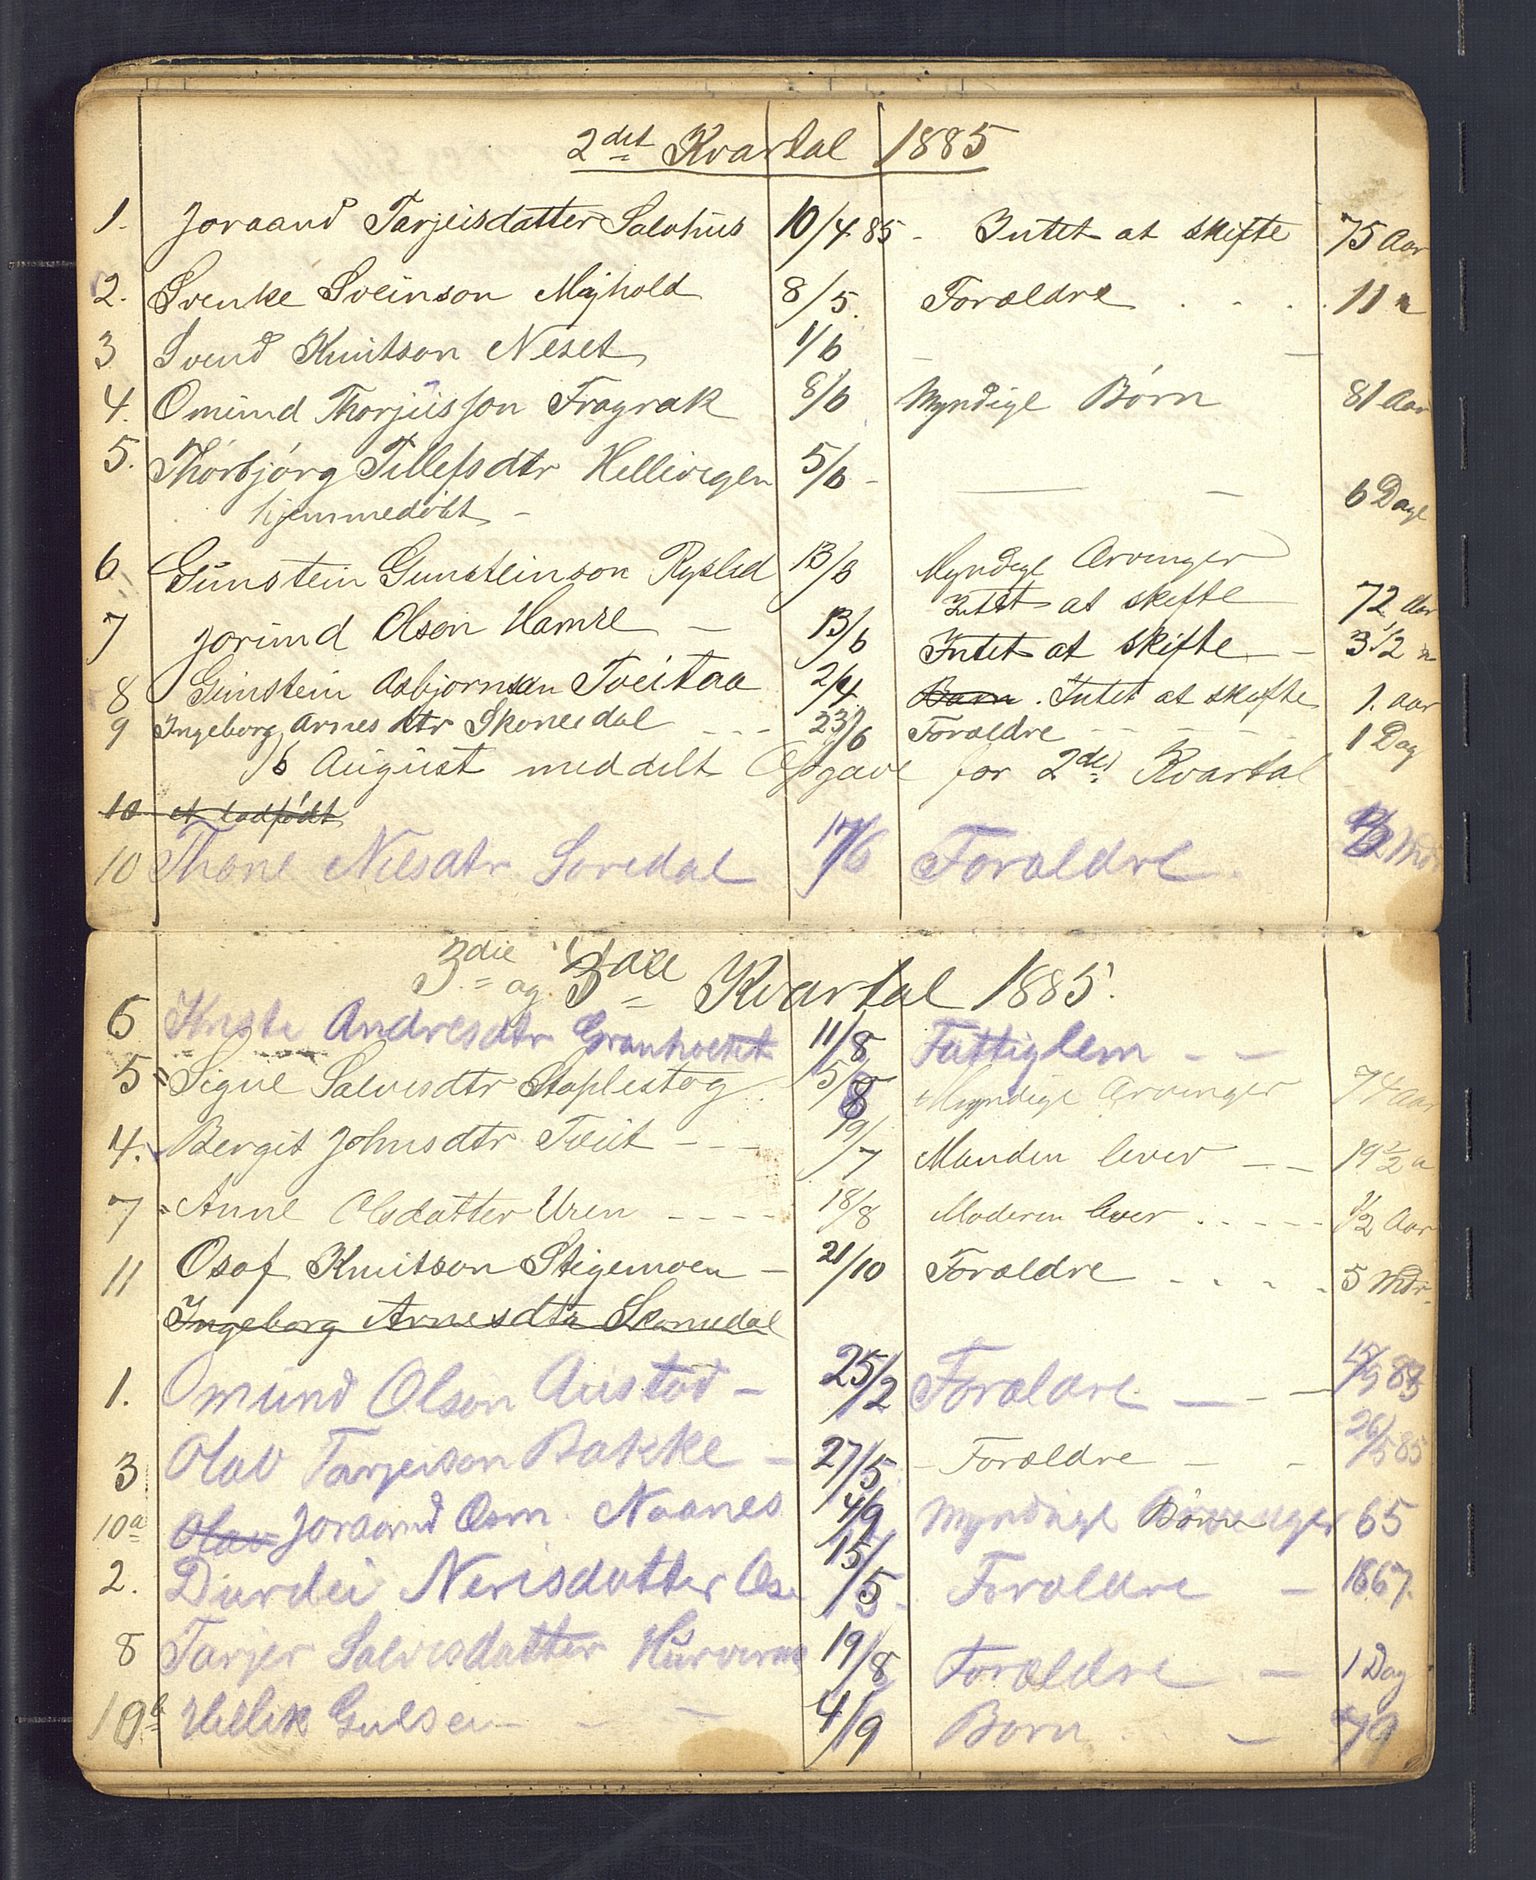 2det Kvartal 1885
1. Joraand Tarjeisdatter Salvhus 10/4 85 - Intet at skifte 75 Aar
2. Svenke Sveinson Myhold 8/5. Forældre . - . 11 "
3 Svend Knutson Neset 1/6 - -
4. Omund Thorjusson Fragrak 8/6 Myndige Børn 81 Aar
5. Thorbjørg Tellefsdtr Hellivegen 5/6 - — - 6 Dage
hjemmedøbt -
6 Gunstein Gunsteinson Rysstad 13/ Myndige Arvinger
Intet at skifte 72 Aar
7 Jorund Olson Hamre - 13/6 Intet at skifte - 3 1/2 "
8 Gunstein Asbjørnsen Tveitaa 2/4 Barn . Intet at skifte 1. aar
9 Ingeborg Arnesdtr Skomedal - - - 23/6 Forældre - - - - 1 Dag
/6 August meddelt Opgave for 2det Kvartal
10 et dødfødt
10 Thone Nilsdtr Soredal 17/6 Forældre.
3die og Kvartal 1885.
6 Andresdtr 11/8 Fattiglem - -
5 Signe Salvesdtr Staplestog 5/8 Myndige Arvinger 74 Aar
4. Bergit Johnsdtr Tveit - - - 19/7 Manden lever - - 19 1/2 a
7 Anne Olsdatter Uren - - - - 18/8 Moderen lever . . - - - 1/2 Aar
11 Osof Knutson Stigemoen - 21/10 Forældre . . - . 5 Mdr.
Ingeborg Arnesdtr Skomedal
1. Omund Olson Austad - 25/2 Forældre - - - 15/9 83
3 Olav Tarjeison Bakke - 27/5 - Forældre - - 26/5 85
10a Olav Joraand Osm. Naanes 4/9 Myndige 65
2. Durdei Nerisdatter Ose 15/5 - Forældre - 1867.
8 Tarjer Salvesdatter 19/8 Forældre - 1 Dag
10b Hellik Gulsen - - - 4/9 Born . . - 79